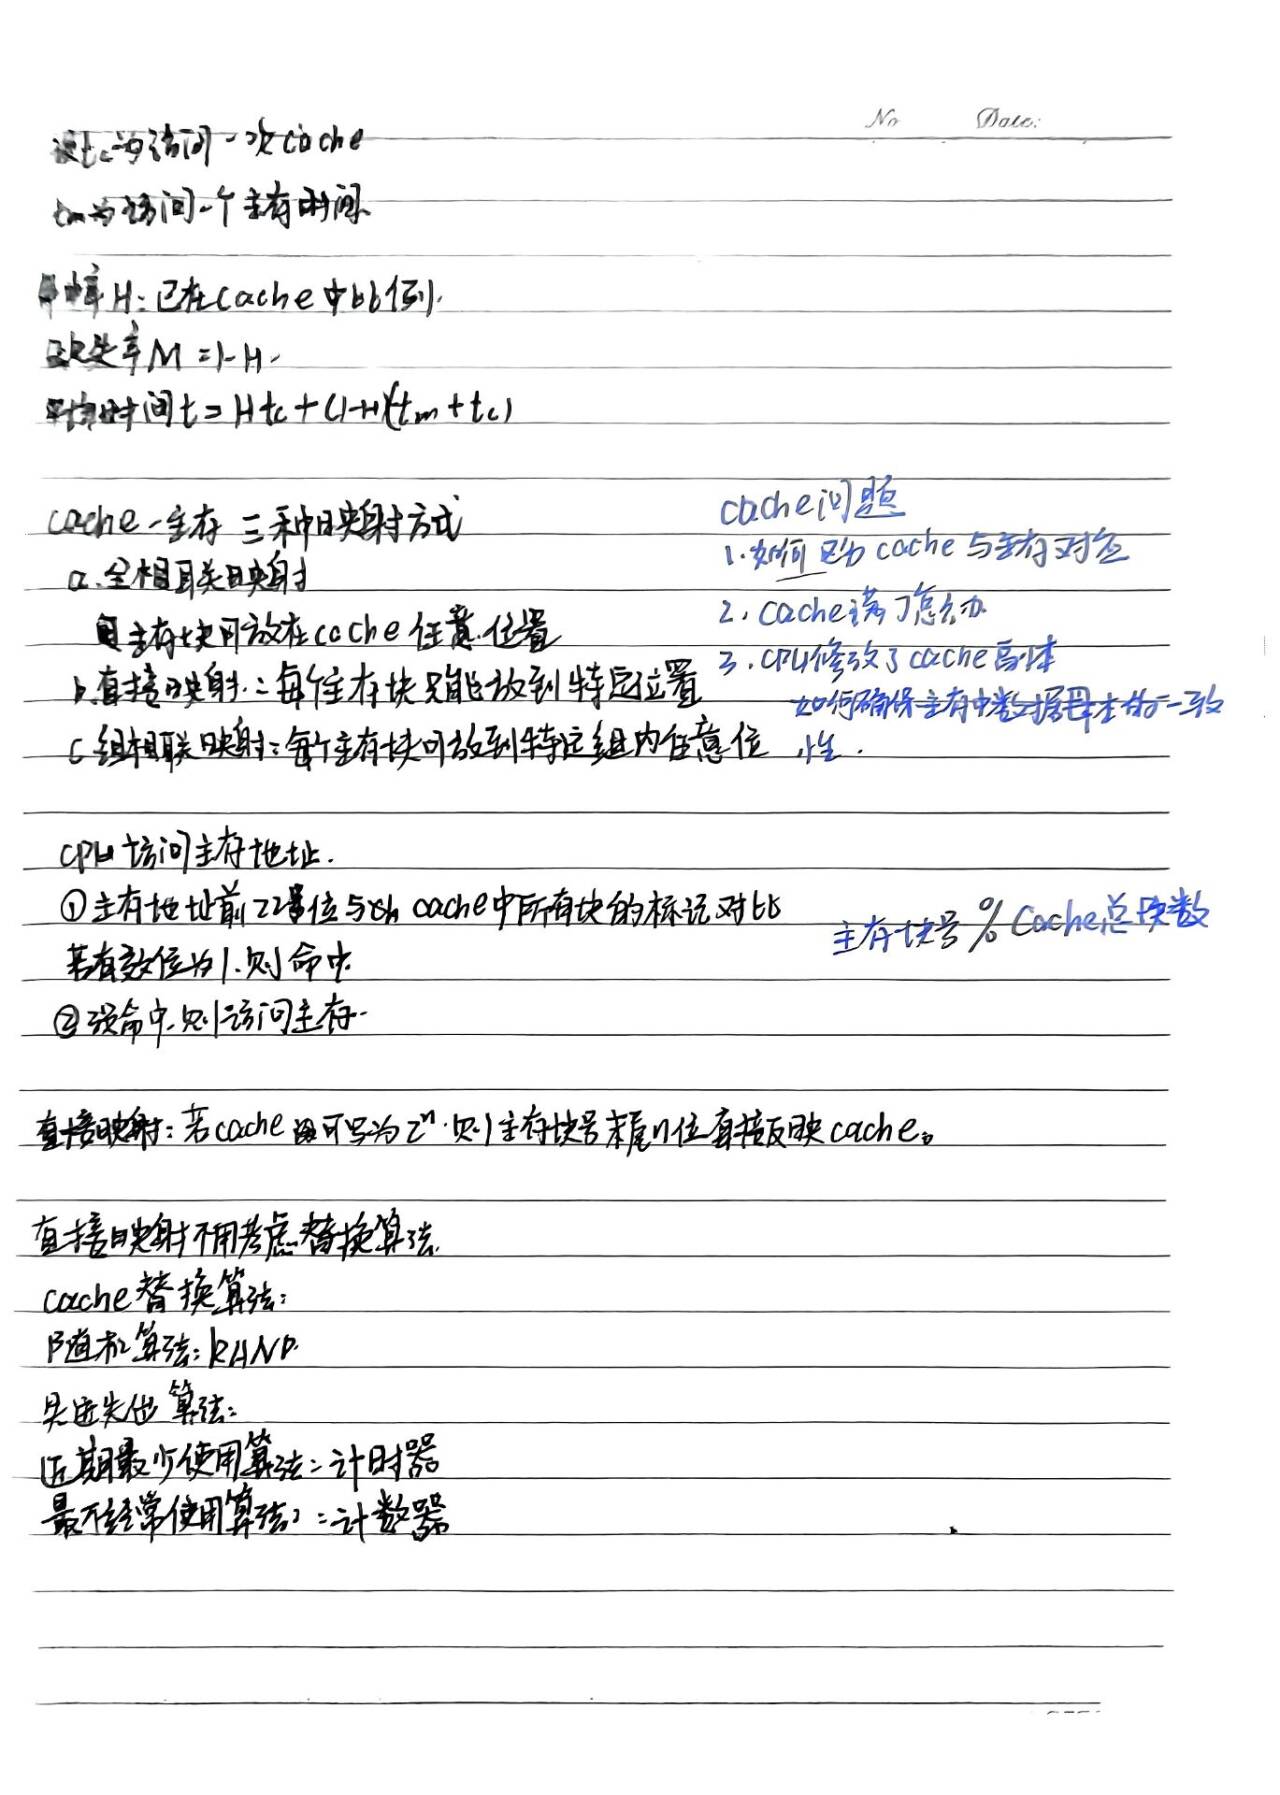 No Date:
设tc为访问一次cache
tm为访问一个主存时间.
命中率H:已在cache中比例.
缺失率M=1-H.
平均时间t=Htc+(1-H)(tm+tc)
cache-主存 三种映射方式
a.全相联映射
主存块可放在cache任意位置
b.直接映射:每个主存块只能放到特定位置
c组相联映射:每个主存块可放到特定组内任意位
cache问题
1.如何 cache与主存对应
2.cache满了怎么办
3.CPU修改了cache副本
如何确保主存中数据母本的一致
性.
CPU访问主存地址.
①主存地址前22位与 cache中所有块的标记对比
若有效位为1.则命中.
②没命中.则访问主存.
主存块号%Cache总块数
直接映射:若cache 可写为2ⁿ.则主存块号末尾n位直接反映cache。
直接映射不用考虑替换算法.
cache替换算法:
随机算法:RAND.
先进先出算法:
近期最少使用算法:计时器
最不经常使用算法:计数器